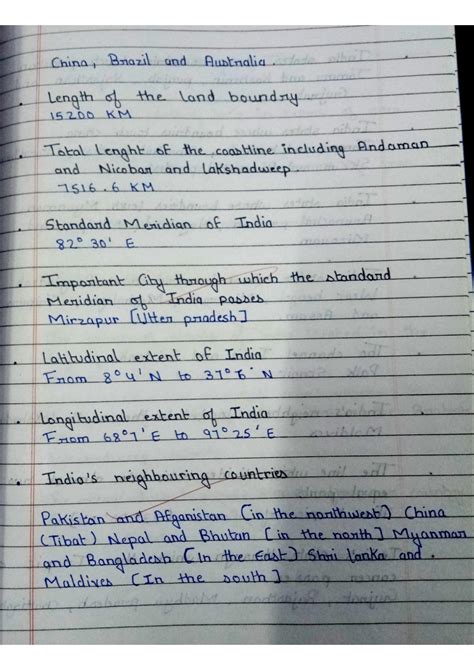 China, Brazil and Australia.
Length of the land boundry
15200 KM
Total Lenght of the coastline including Andaman
and Nicobar and Lakshadweep.
7516.6 KM
Standard Meridian of India
82° 30' E
Important City through which the standard
Meridian of India passes
Mirzapur [Utter pradesh]
Latitudinal extent of India
From 8°4' N to 37°6' N
Longitudinal extent of India
From 68°7' E to 97°25' E
India's neighbouring countries
Pakistan and Afganistan [in the northwest] China
(Tibat) Nepal and Bhutan [in the north] Myanman
and Bangladesh [In the East] Shri lanka and.
Maldives [In the south]